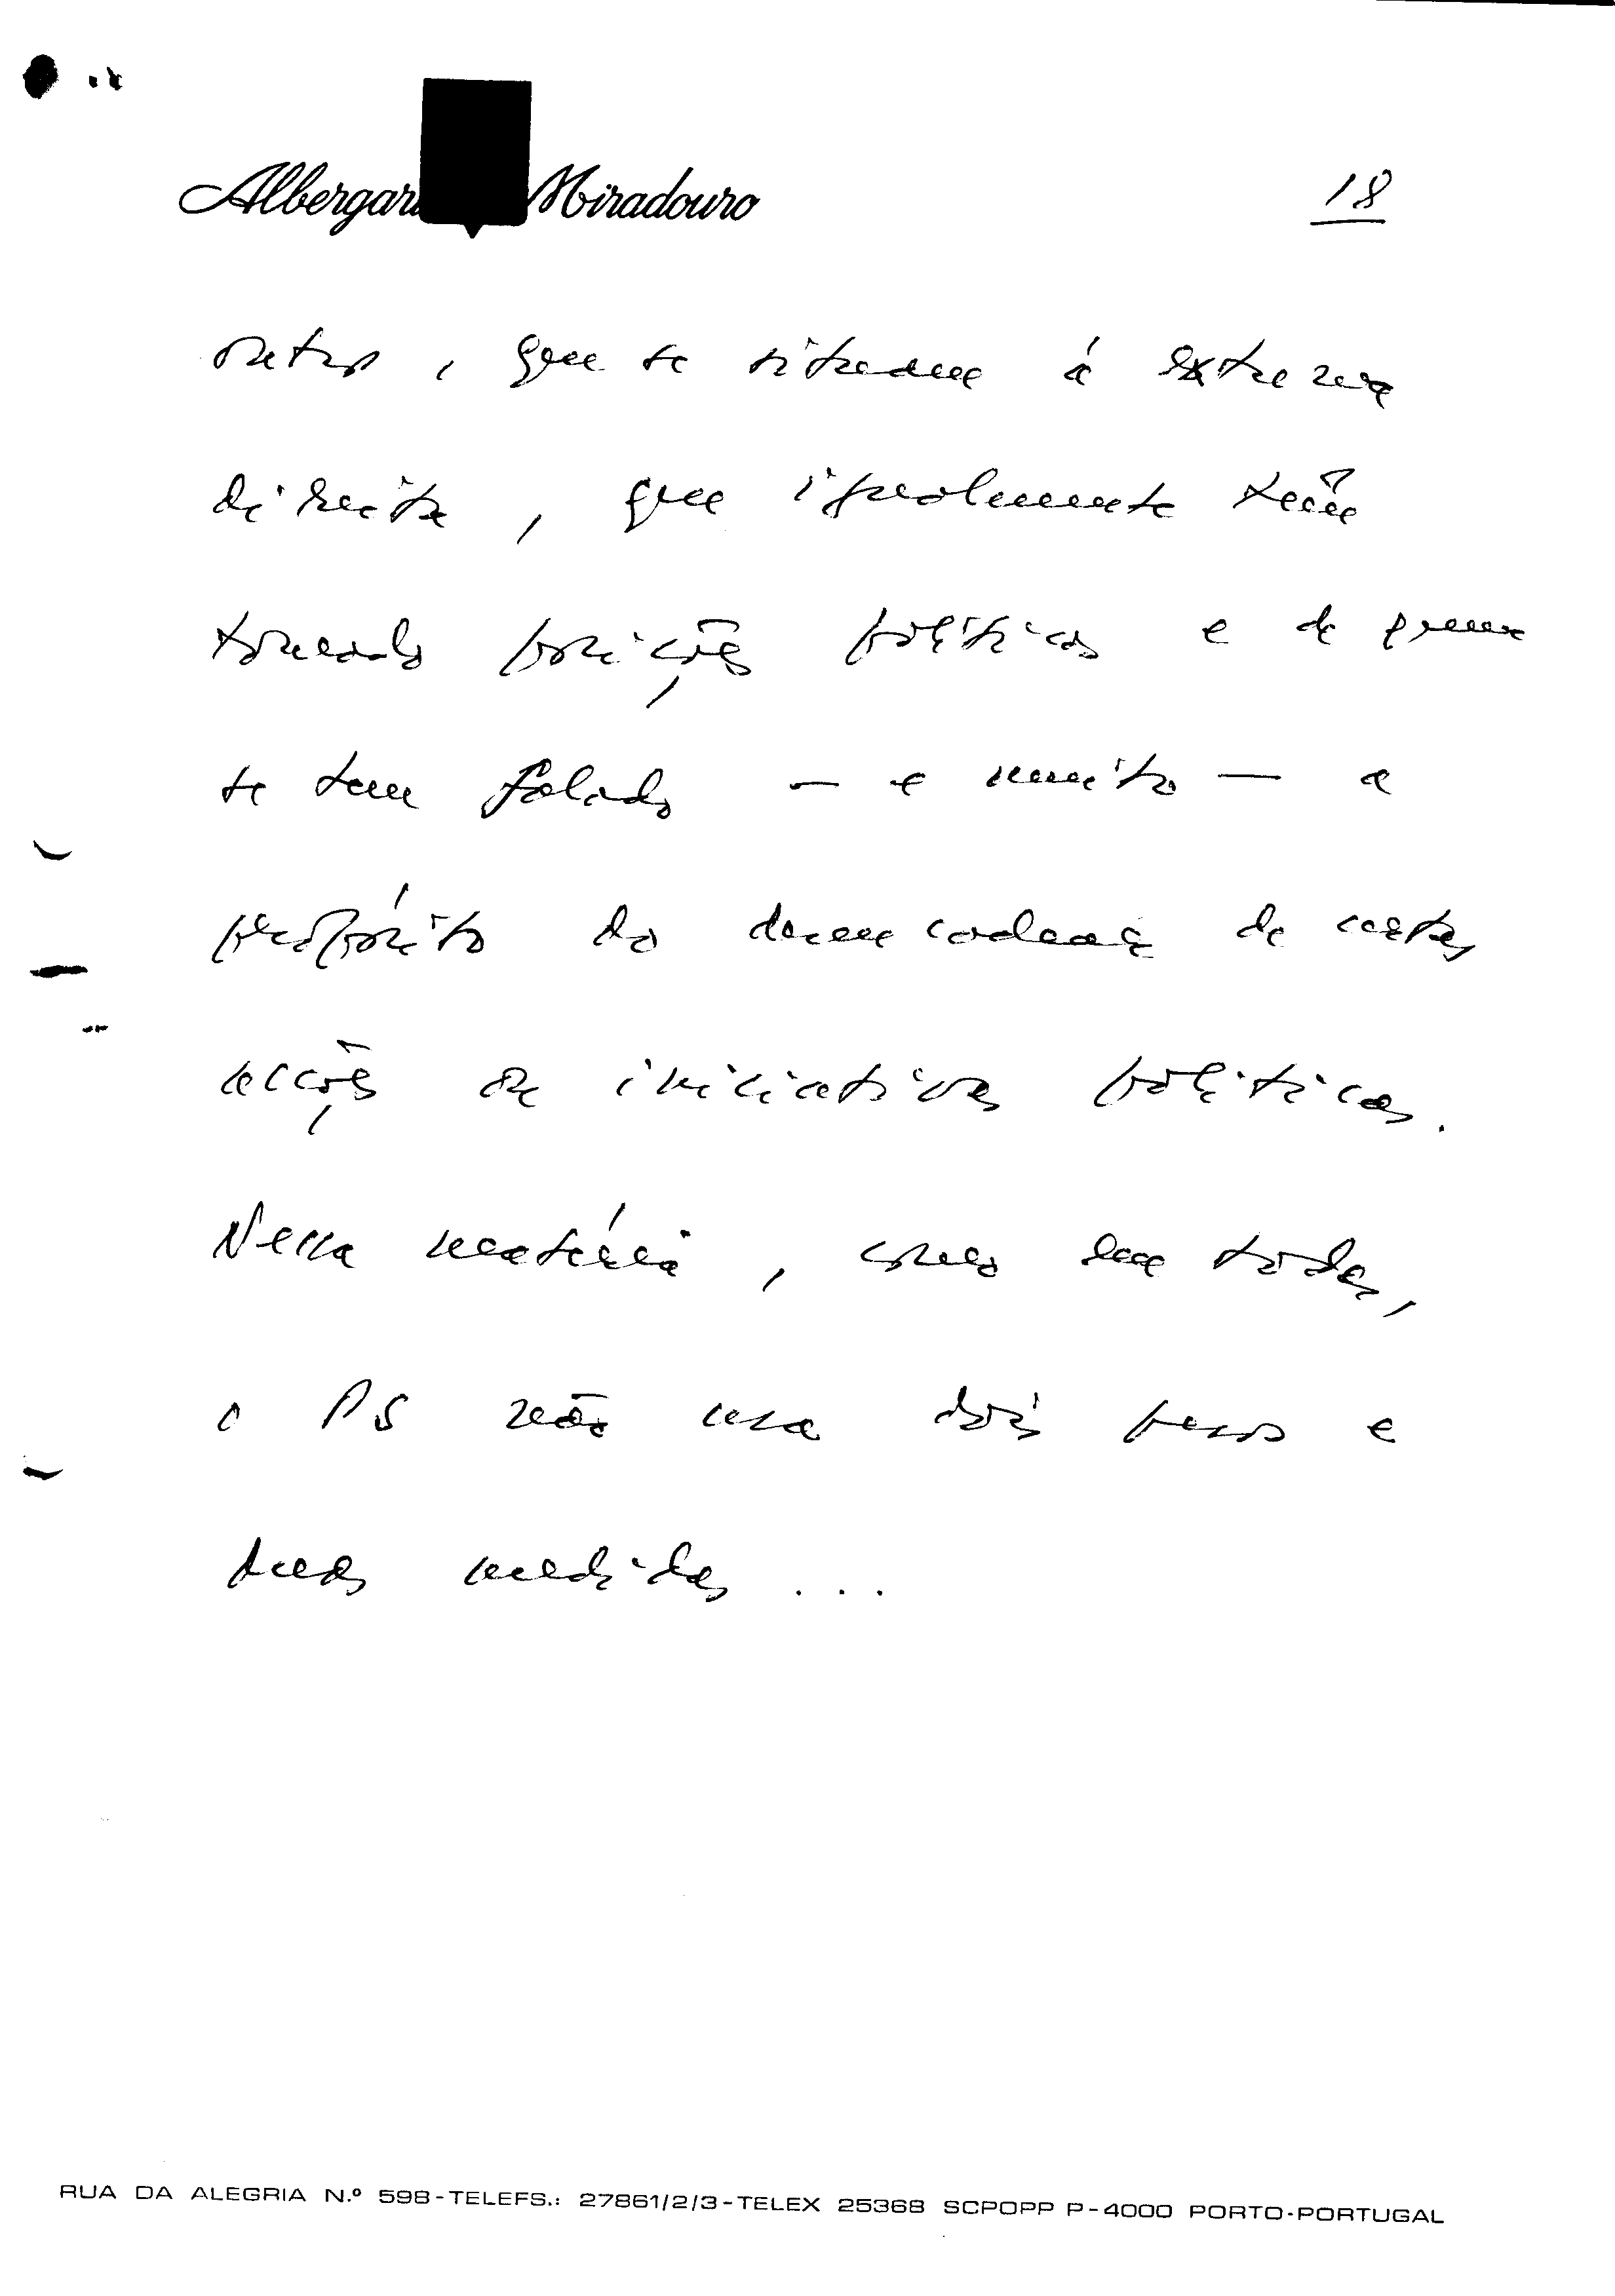 Albergaria Miradouro
18
outros, que se situam à extrema
direita, que igualmente têm
tomado posições políticas e de quem
se tem falado — e muito — a
propósito do desencadear de certas
acções ou iniciativas políticas.
Nessa matéria, como em todas,
o PS não usa dois pesos e
duas medidas ...
RUA DA ALEGRIA N.º 598-TELEFS.: 27861/2/3-TELEX 25368 SCPOPP P-4000 PORTO-PORTUGAL